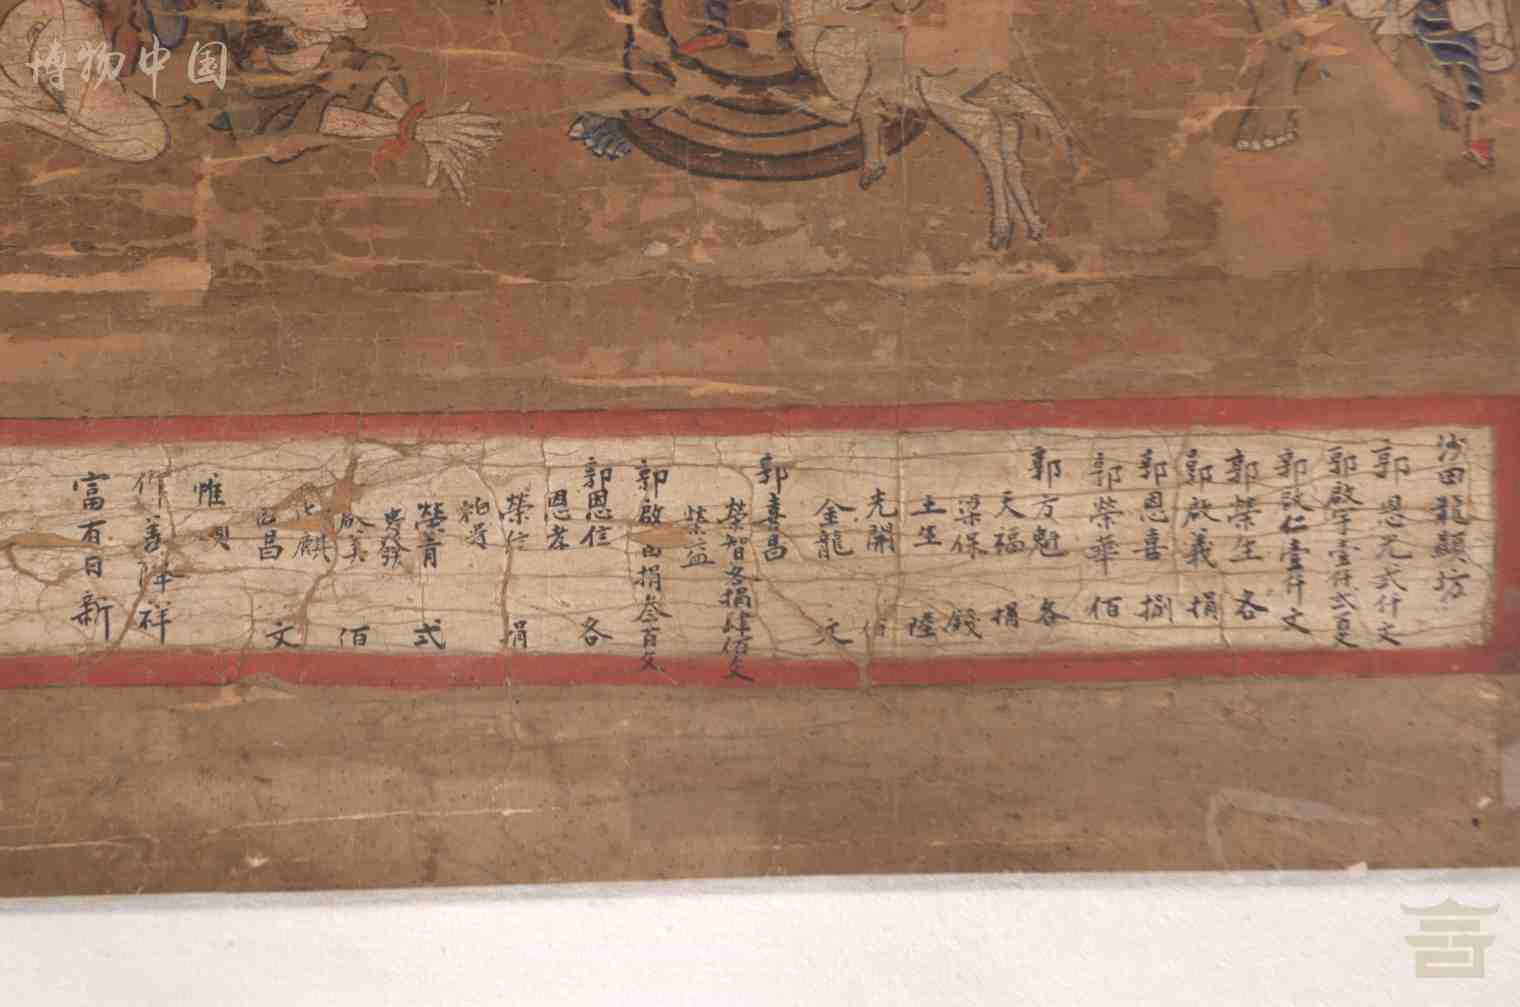 博物中国
沙田龍顯坊
郭恩元弍仟文
郭啟宇壹仟弍百文
郭啟仁壹仟文
郭榮生各
郭啟義捐
郭恩喜捌
郭榮華佰
郭方魁各
天福捐
梁保錢
土生陸
光開佰
金龍文
郭喜昌
榮智各捐肆佰文
榮益
郭啟由捐叁百文
郭恩信各
恩孝
榮信捐
榮青弍
啟美佰
昌文
惟
作善降祥
富有日新